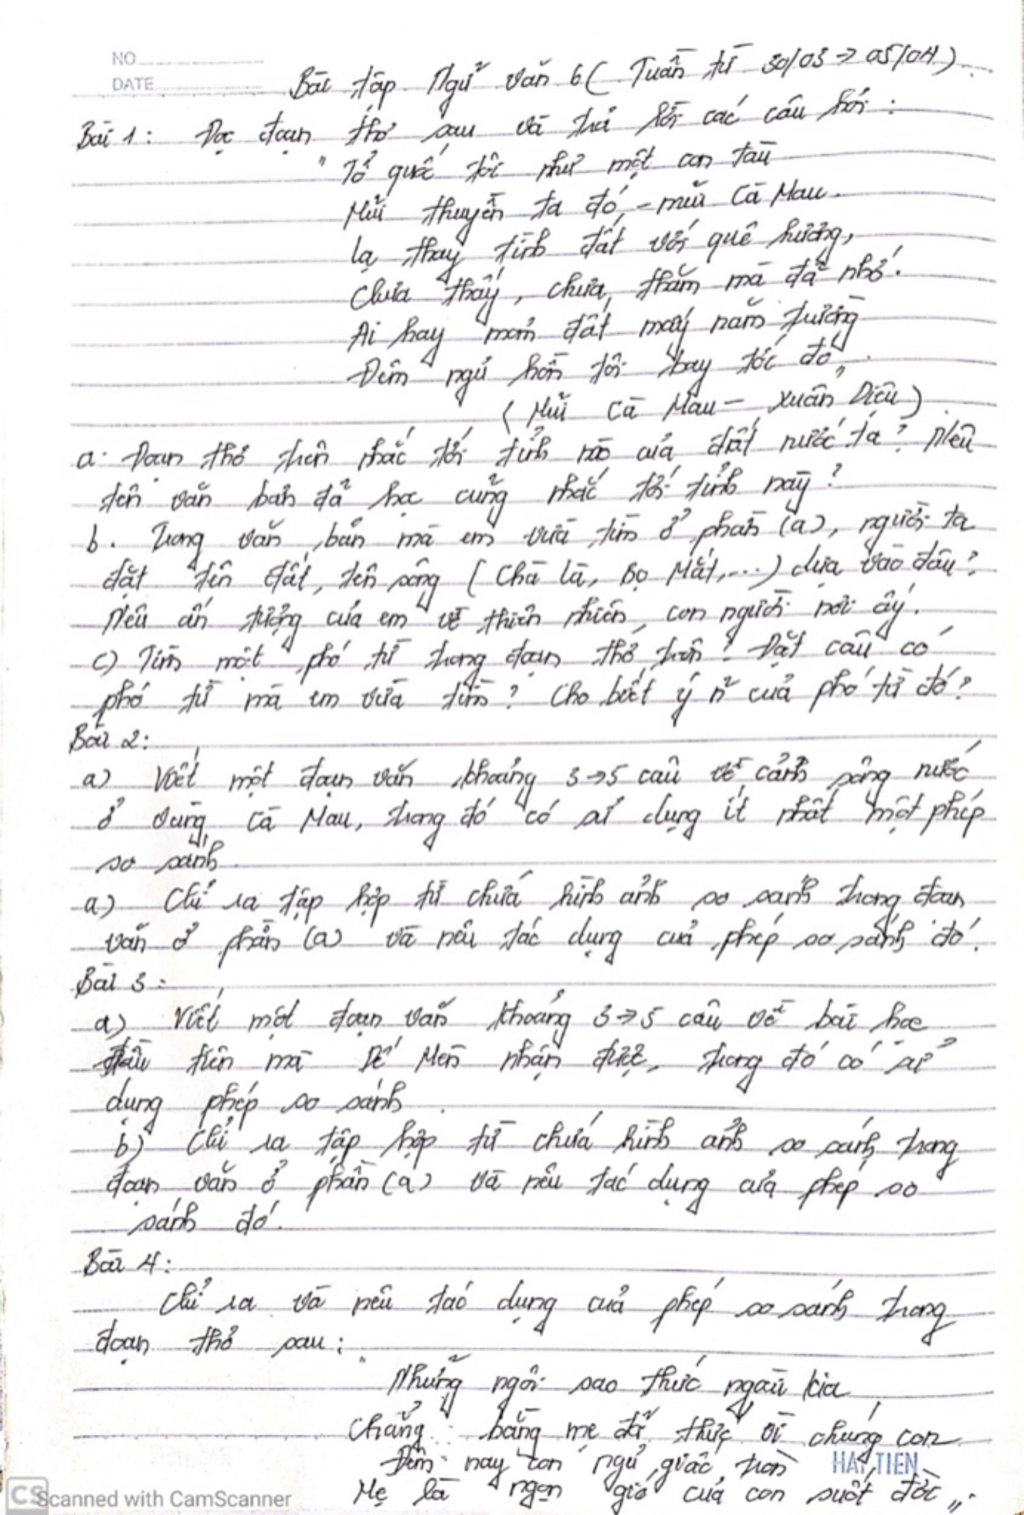 NO
DATE
Bài tập Ngữ văn 6 ( Tuần từ 30/03 → 05/04)
Bài 1: Đọc đoạn thơ sau và trả lời các câu hỏi :
" Tổ quốc tôi như một con tàu
Mũi thuyền ta đó, - mũi Cà Mau.
Lạ thay tình đất với quê hương,
Chưa thấy, chưa thăm mà đã nhớ.
Ai hay mảnh đất mấy năm trường
Đêm ngủ hồn tôi bay tới đó "
( Mũi Cà Mau - Xuân Diệu )
a. Đoạn thơ trên nhắc tới tỉnh nào của đất nước ta? Nêu
tên văn bản đã học cũng nhắc tới tỉnh này?
b. Trong văn bản mà em vừa tìm ở phần (a), người ta
đặt tên đất, tên sông ( Chà Là, Bọ Mắt,...) dựa vào đâu?
Nêu ấn tượng của em về thiên nhiên, con người nơi ấy.
c) Tìm một phó từ trong đoạn thơ trên? Đặt câu có
phó từ mà em vừa tìm? Cho biết ý n² của phó từ đó?
Bài 2:
a) Viết một đoạn văn khoảng 3→5 câu về cảnh sông nước
ở vùng Cà Mau, trong đó có sử dụng ít nhất một phép
so sánh.
a) Chỉ ra tập hợp từ chứa hình ảnh so sánh trong đoạn
văn ở phần (a) và nêu tác dụng của phép so sánh đó.
Bài 3:
a) Viết một đoạn văn khoảng 3→5 câu về bài học
đầu tiên mà Dế Mèn nhận được, trong đó có sử
dụng phép so sánh.
b) Chỉ ra tập hợp từ chứa hình ảnh so sánh trong
đoạn văn ở phần (a) và nêu tác dụng của phép so
sánh đó.
Bài 4:
Chỉ ra và nêu tác dụng của phép so sánh trong
đoạn thơ sau:
" Những ngôi sao thức ngoài kia
Chẳng bằng mẹ đã thức vì chúng con
Đêm nay con ngủ giấc tròn
HẢI TIẾN
Mẹ là ngọn gió của con suốt đời ".
CS Scanned with CamScanner